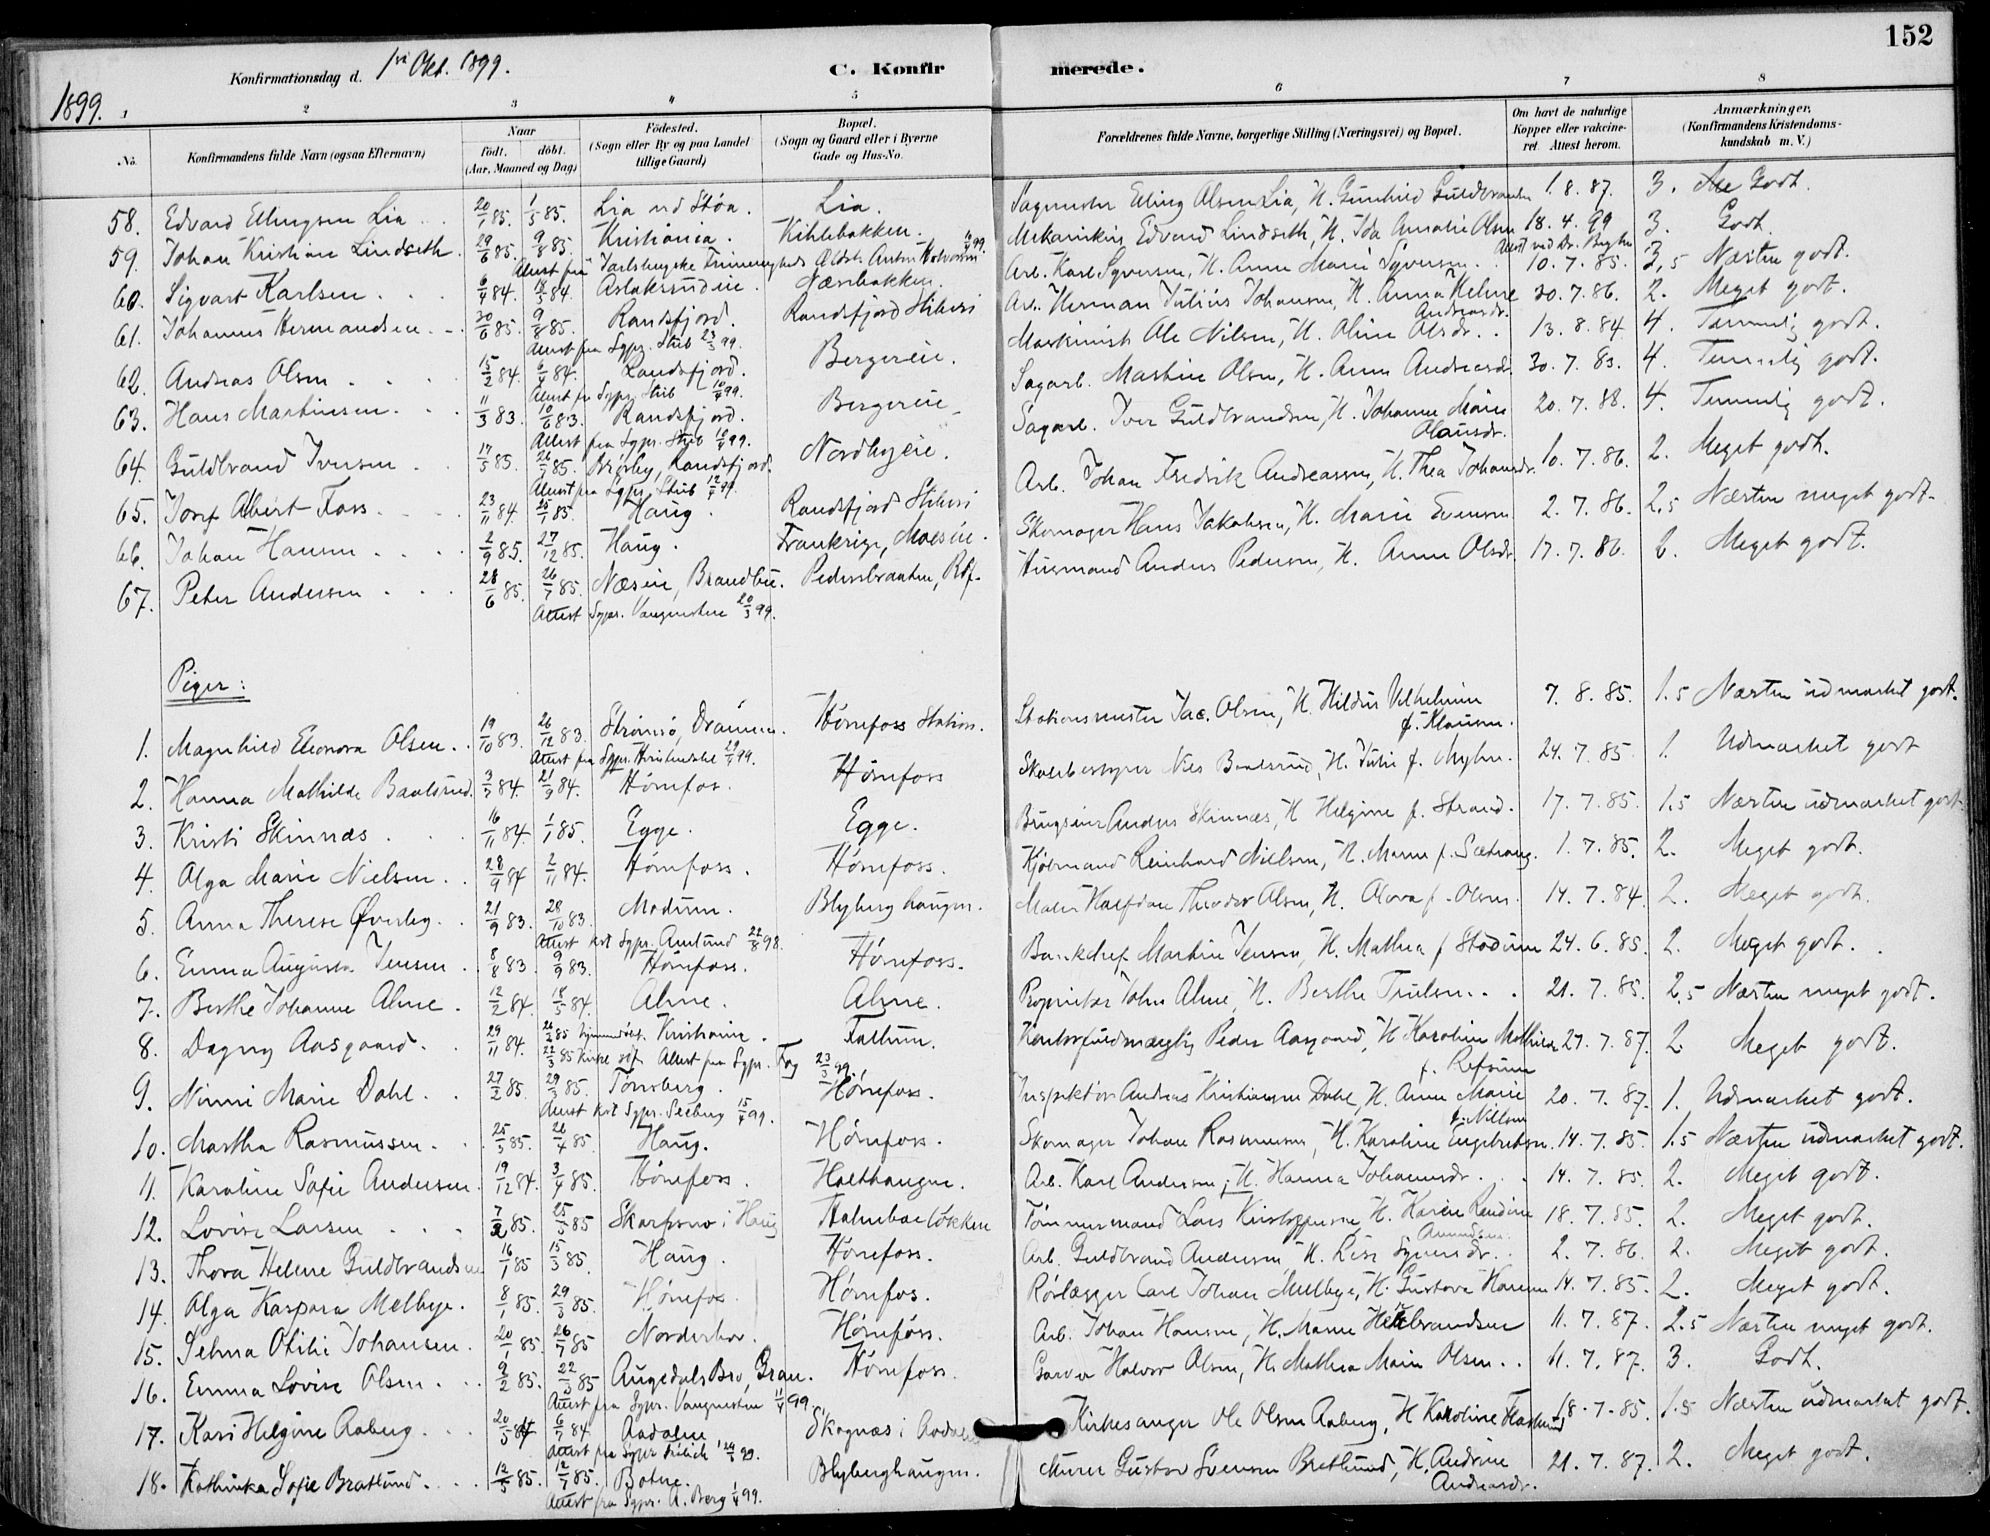 152
Konfirmationsdag d. 1ste Okt. 1899.
C. Konfirmerede.
1899.
1 2 3 4 5 6 7 8
No. Konfirmandens fulde Navn (ogsaa Efternavn) Naar Født. døbt. (Aar, Maaned og Dag) Fødested. (Sogn eller By og paa Landet tillige Gaard) Bopæl. (Sogn og Gaard eller i Byerne Gade og Hus-No. Forældrenes fulde Navne, borgerlige Stilling (Næringsvei) og Bopæl. Om havt de naturlige Kopper eller vakcineret. Attest herom. Anmærkninger. (Konfirmandens Kristendomskundskab m. V.)
58. Edvard Ellingsen Lia 20/1 85. 1/5 85. Lia ved Støa. Lia. Sagmester Elling Olsen Lia, H. Gunhild Guldbrands 1.8.87. 3. Godt.
59. Johan Kristian Lindseth 29/6 85. 9/8 85. Kristiania. Kihlebakken. Mekanikus Edvard Lindseth, H. Ida Amalie Olsen 18.4.99 3. Godt.
Attest fra Jarlsbergske Frimenigheds
60. Sigvart Karlsen 6/4 84. 18/5 84. Aslaksrudeie. Næsbakken. Arb. Karl Syversen, H. Anne Marie Syversen. 10.7.85. 3,5 Næsten godt.
61. Johannes Hermandsen 20/6 85. 9/8 85. Randsfjord. Randsfjord Sliberi Arb. Herman Julius Johansen, H. Anna Helene Andreasdr. 30.7.86. 2. Meget godt.
Attest fra Sgpr. Stub 23/3 99.
62. Andreas Olsen 15/2 84. 6/4 84. Randsfjord. Bergereie. Maskinist Ole Nilsen, H. Oline Olsdr. 13.8.84 4. Temmelig godt.
Attest fra Sgpr. Stub 10/4 99.
63. Hans Martinsen 11/3 83. 10/6 83. Randsfjord. Bergereie Sagarb. Martin Olsen, H. Anne Andreasdr. 30.7.83. 4. Temmelig godt.
Attest fra Sgpr. Stub 10/4 99.
64. Guldbrand Iversen 17/5 85. 26/7 85. Brørby, Randsfjord. Nordbyeie. Sagarb. Iver Guldbrandsen, H. Johanne Marie Olausdr. 20.7.88. 4. Temmelig godt.
Attest fra Sgpr. Stub 12/4 99.
65. Josef Albert Foss 23/11 84. 25/1 85. Haug. Randsfjord Sliberi Arb. Johan Fredrik Andreassen, H. Thea Johansdr. 10.7.86. 2. Meget godt.
66. Johan Hansen 2/9 85. 27/12 85. Haug. Frankrige, Moeseie. Skomager Hans Jakobsen, H. Marie Evensen 2.7.86. 2,5 Næsten meget godt.
67. Peter Andersen 28/6 85. 26/7 85. Næseie, Brandbu. Pedersbraaten, Rdf. Husmand Anders Pedersen, H. Anne Olsdr. 17.7.86. 2. Meget godt.
Attest Sgpr. Vangensteen 20/3 99.
Piger:
1. Magnhild Eleonora Olsen 19/10 83. 26/12 83. Strømsø, Drammen. Hønefoss Station. Stationsmester Jac. Olsen, H. Hilda Vilhelmine f. Klausen. 7.8.85. 1.5 Næsten udmærket godt.
Attest fra Sgpr. 29/4 99.
2. Hanna Mathilde Baalsrud. 3/7 84. 21/9 84. Hønefos. Hønefoss Skolebestyrer Nils Baalsrud, H. Julie f. Myhre. 24.7.85. 1. Udmærket godt
3. Kristi Skinnæs 16/11 84. 1/1 85. Egge. Egge. Brugseier Anders Skinnæs, H. Helgine f. Strand. 17.7.85. 1.5 Næsten udmærket godt.
4. Olga Marie Nielsen 28/9 84 2/11 84. Hønefoss. Hønefoss. Kjøbmand Reinhard Nielsen, H. Maren f. Sætrang. 1.7.85. 2. Meget godt.
5. Anna Therese Øverby. 21/9 83. 28/10 83. Modum. Blyberghaugen. Maler Halfdan Theodor Olsen, H. Olava f. Olsen. 14.7.84. 2. Meget godt.
Attest kst Sgpr. Amlund 22/8 98.
6. Emma Augusta Jensen 8/8 83. 9/9 83. Hønefoss. Hønefoss. Bankchef Martin Jensen, H. Mathea f Stadum 24.6.85. 2. Meget godt.
7. Berthe Johanne Alme 12/2 84. 18/5 84. Alme. Alme. Proprietær John Alme, H. Berthe Trulsen. 21.7.85. 2,5 Næsten meget godt.
8. Dagny Aasgaard. 29/11 84. 26/2 85 hjemmedøbt. Kristiania. Tallum. Kontorfuldmægtig Peder Aasgaard, H. Karoline Mathilde f. Refsum 27.7.87. 2 Meget godt.
22/3 85 Kirke stf. Attest fra Sgpr. Fog 23/3 99.
9. Ninni Marie Dahl 27/2 85. 29/3 85. Tønsberg. Hønefoss. Inspektør Andreas Kristiansen Dahl, H. Anne Marie f. Nilsen 20.7.87. 1. Udmærket godt.
Attest kst Sgpr. Seeberg 15/4 99.
10. Martha Rasmussen 25/3 85. 26/4 85. Haug. Hønefoss. Skomager Johan Rasmussen, H. Karoline Engebretsen. 14.7.85. 1.5 Næsten udmærket godt.
11. Karoline Sofie Andersen 19/12 84. 3/4 85. Hønefoss. Holthaugen. Arb. Karl Andersen, H. Hanna Johannesdr. 14.7.85. 2. Meget godt.
12. Lovise Larsen 7/2 85. 25/5 85 Skarpsno i Haug Halmbaeløkken Tømmermand Lars Kristoffersen, H. Karen Randine Amundsen. 18.7.85. 2. Meget godt.
13. Thora Helene Guldbrandsen 16/1 85 15/3 85. Haug. Hønefoss. Arb. Guldbrand Andersen H. Lise Syversdr. 2.7.86. 2. Meget godt.
14. Olga Kaspara Melbye. 8/1 85. 29/3 85. Hønefos. Hønefos. Rørlægger Carl Johan Melbye, H. Gustava Hansen 14.7.85. 2. Meget godt.
15. Selma Otilie Johansen 20/1 85. 26/7 85 Norderhov. Hønefoss. Arb. Johan Hansen, H. Maren Hellebrandsen 11.7.87. 2.5 Næsten meget godt.
16. Emma Lovise Olsen 9/2 85. 22/3 85 Augedals Bro, Gran. Hønefoss. Garver Halvor Olsen, H. Mathea Marie Olsen. 11.7.87. 3. Godt.
Attest fra Sgpr. Vangensteen 11/4 99
17. Kari Helgine Aaberg. 20/5 84 6/7 84. Aadalen Skagnæs i Aadalen Kirkesanger Ole Olsen Aaberg, H Karoline 18.7.85. 1.5 Næsten udmærket godt.
Attest fra Sgpr Frölich
18. Kathinka Sofie Bratlund. 12/5 85. 12/7 85. Botne. Blyberghaugen. Murer Gustav Svensen Bratlund, H. Andrine Andreasdr. 21.7.87. 2. Meget godt.
Attest fra Sgpr. A. Berg 1/4 99.